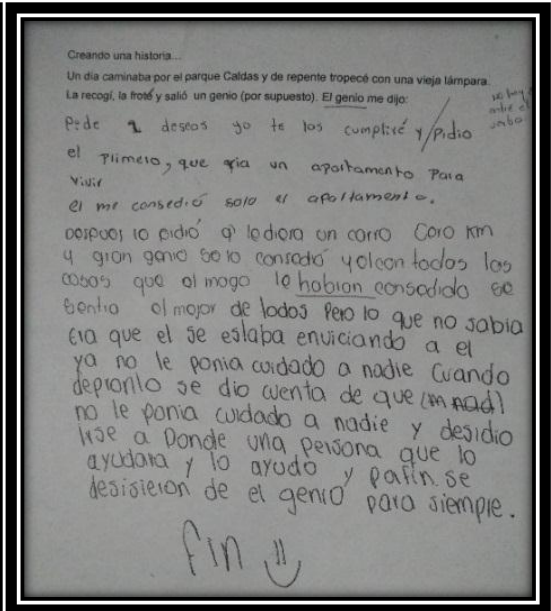 Creando una historia...
Un día caminaba por el parque Caldas y de repente tropecé con una vieja lámpara.
La recogí, la froté y salió un genio (por supuesto). El genio me dijo:
Pide 2 deseos yo te los cumpliré y/pidio
el plimero, que qia un apartamento Para
vivir
el me consedió solo el apartamento.
Despues lo pidió q' lediera un carro Cero km
y gran genio solo consedió yelcon todas las
cosas que el mago le habian consedido se
sentia el mejor de todos Pero lo que no sabia
era que el se estaba enviciando a el
ya no le ponia cuidado a nadie Cuando
deprontlo se dio cuenta de que
no le ponia cuidado a nadie y desidio
irse a Donde una persona que lo
ayudara y lo ayudo y pafin se
desisieron de el genio para siempre.
fin